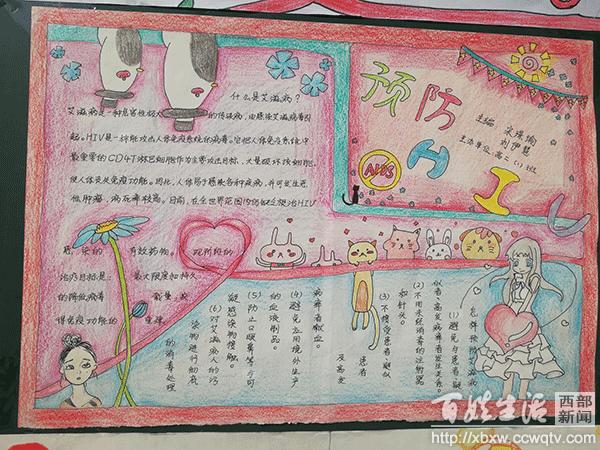 什么是艾滋病？
艾滋病是一种危害性极大的传染病，由感染艾滋病毒引
起。HIV是一种能攻击人体免疫系统的病毒。它把人体免疫系统中
最重要的CD4T淋巴细胞作为主要攻击目标，大量破坏该细胞，
使人体丧失免疫功能。因此，人体易于感染各种疾病，并可发生恶
性肿瘤，病死率较高。目前，在全世界范围内仍缺乏根治HIV
感染的 有效药物。 现阶段的
治疗目标是： 最大限度和持久
的降低病毒
得免疫功能的
预防
HIV
AIDS
主编
刘伊慧
主办单位：高二(1)班
怎样预防艾滋病
(1)避免与患者、疑
似者、高发病率者发生关系。
(2)不用未经消毒的注射器
和针头。
(3)不接受患者、疑似
患者
及高发
病率者献血。
(4)避免应用境外生产
的血液制品。
(5)防止口眼鼻等与可
疑感染物接触。
(6)对艾滋病人的污
染物进行彻底
的消毒处理
百姓生活
西部
新闻
http://xbxw.ccwqtv.com